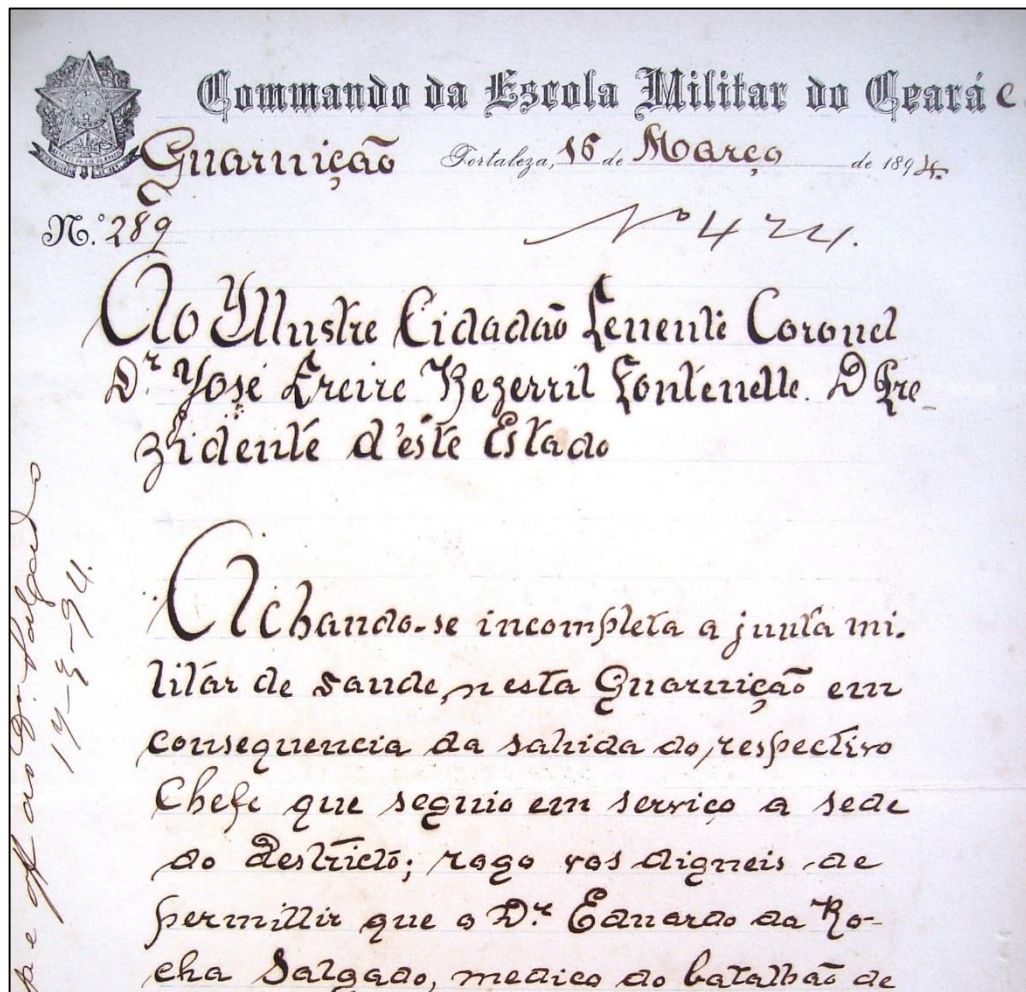 Commando da Escola Militar do Ceará e
Guarnição Fortaleza, 16 de Março de 1894.
N.º 289 Nº 424.
Ao Yllustre Cidadão Tenente Coronel
Dr. José Freire Bezerril Fontenelle. D Pre-
zidente d'este Estado
Achando-se incompleta a junta mi-
litar de saude, nesta Guarnição em
consequencia da sahida do respectivo
Chefe que seguio em serviço a sede
do Destricto; rogo vos digneis de
permittir que o Dr. Eduardo da Ro-
cha Salgado, medico do batalhão de
ao Dr. Salgado
17-3-94.